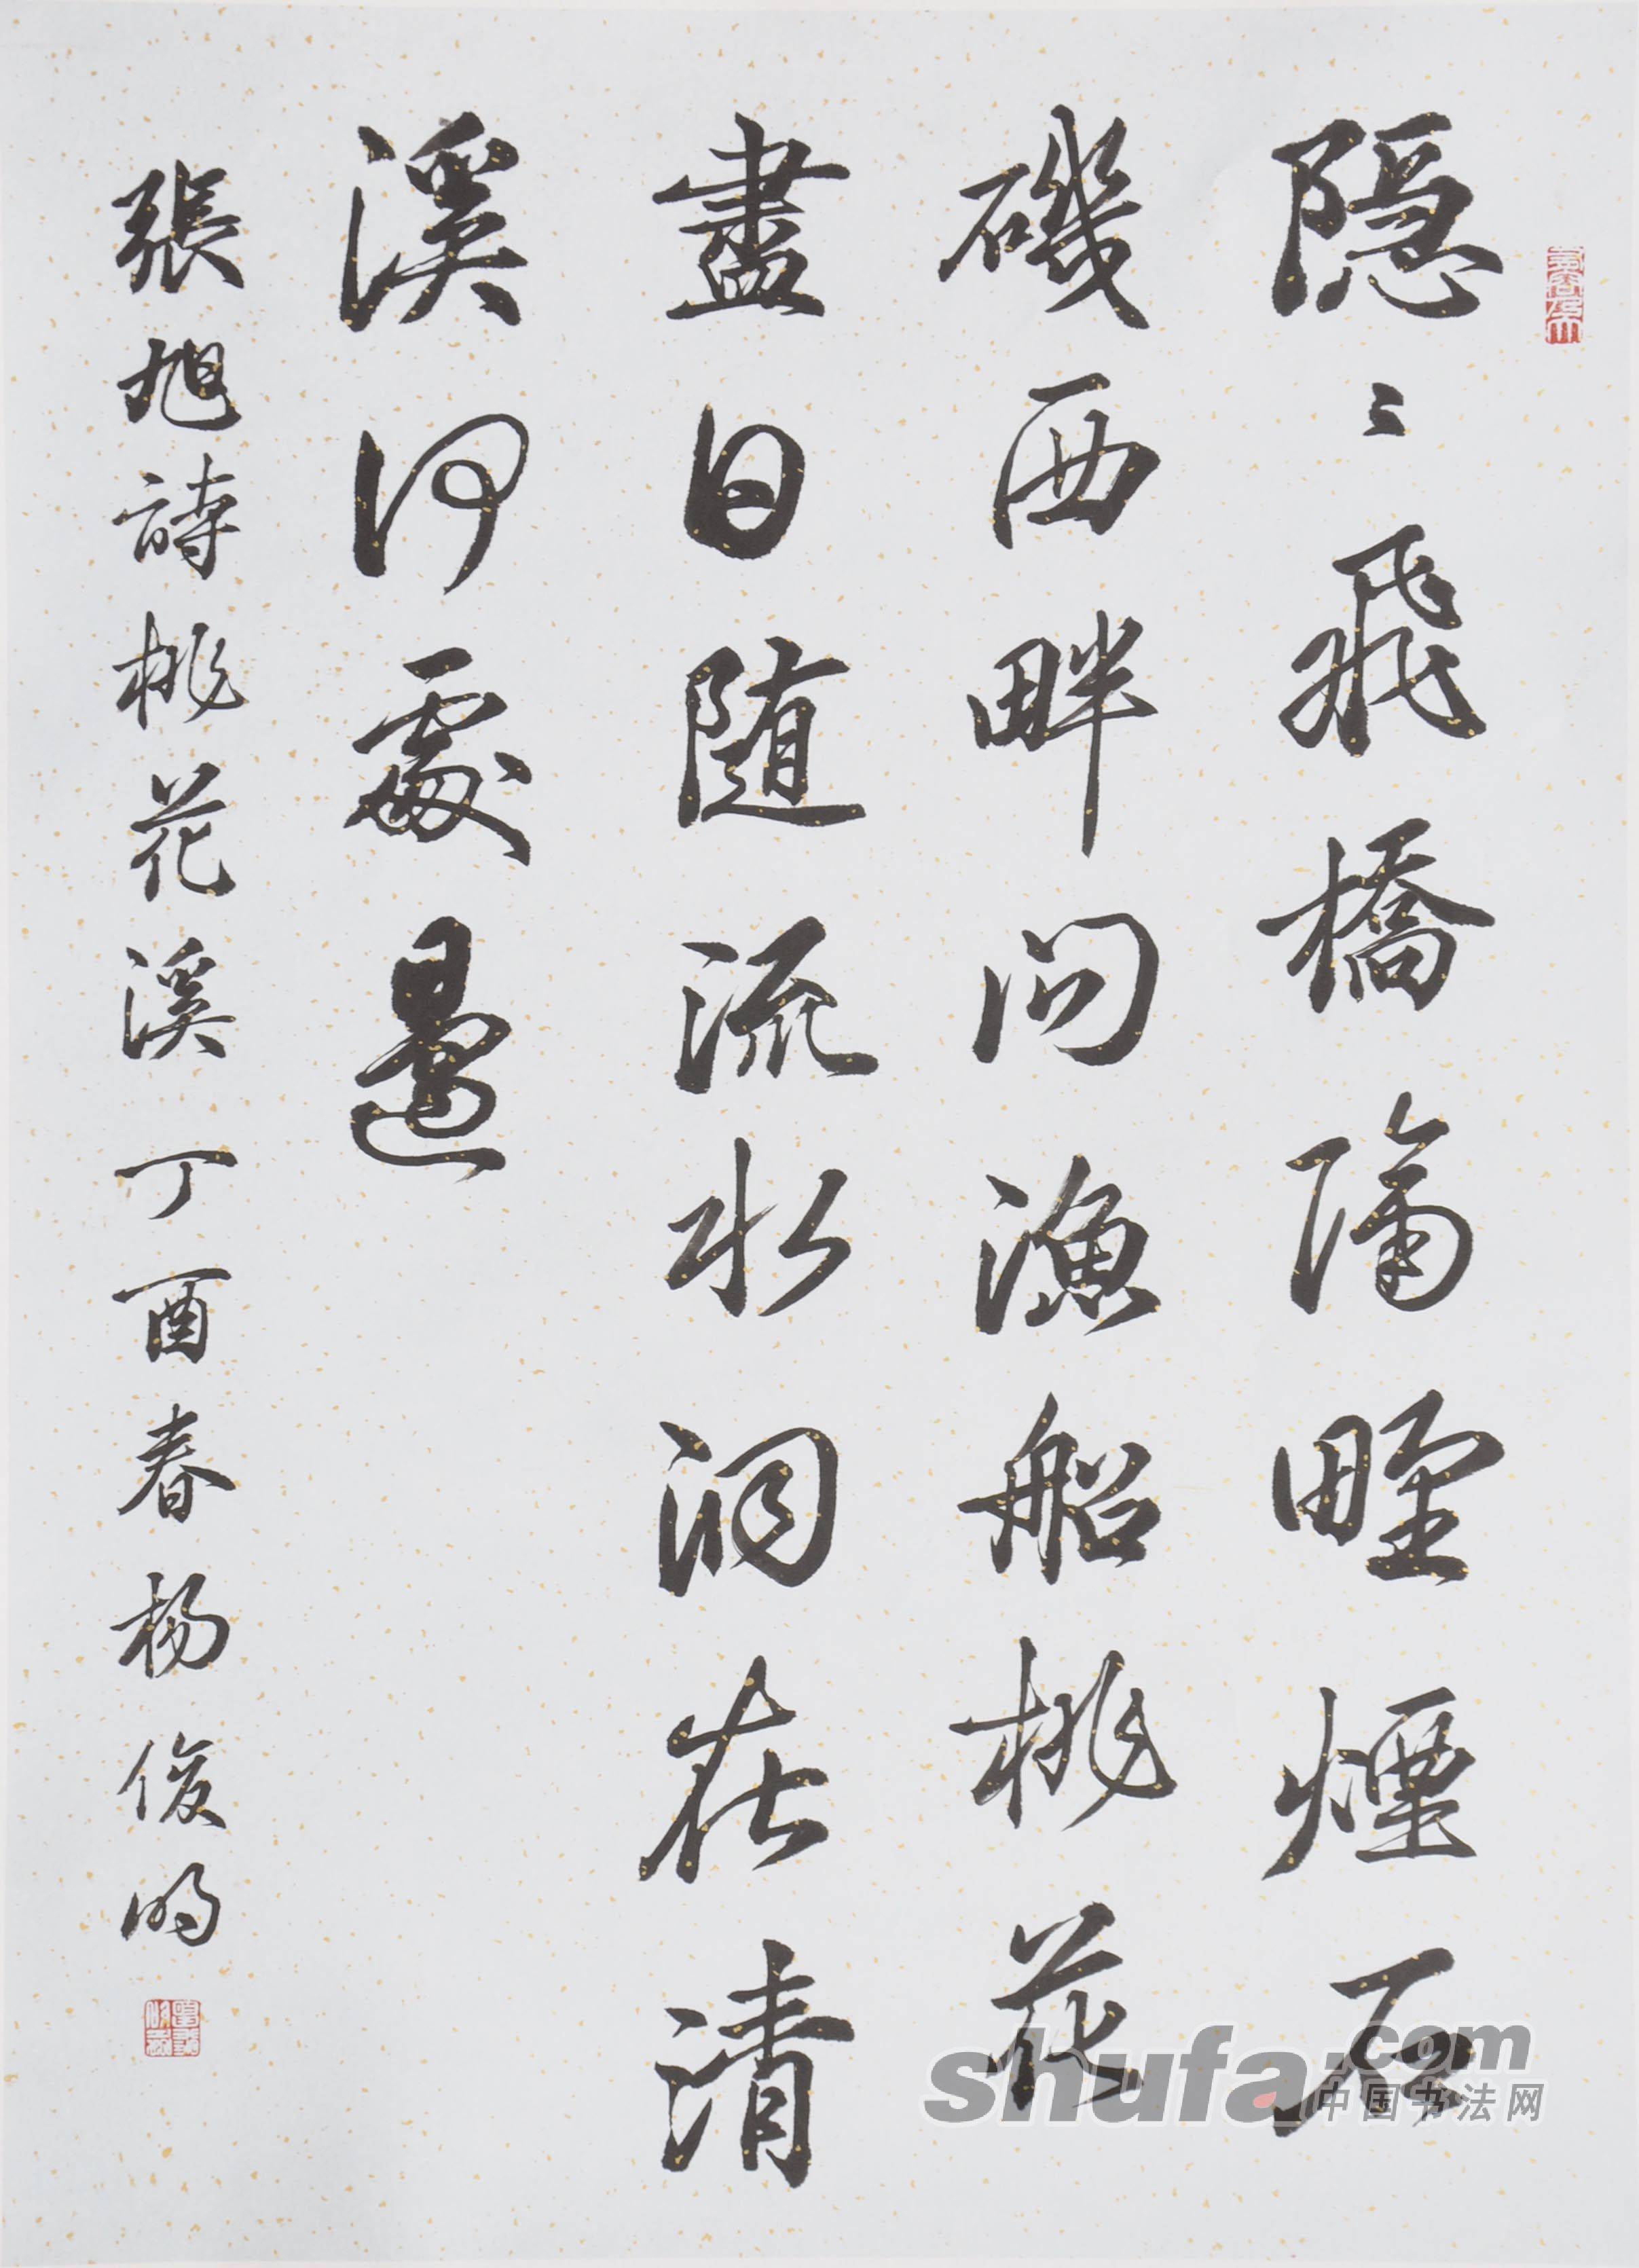 隐〻飛橋隔野煙石
磯西畔问漁船桃花
盡日随流水洞在清
溪何處邊
張旭詩桃花溪丁酉春杨俊明
shufa.com
中国书法网